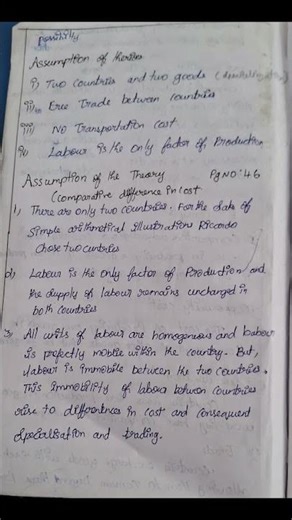 Assumption of theories
i) Two Countries and two goods
ii) Free Trade between countries
iii) No Transportation Cost
iv) Labour is the only factor of Production
Assumption of the Theory Pg NO: 46
(comparative difference in cost
1, There are only two countries. For the sake of
simple arithmetical illustrations Ricardo
chose two cuntries
2) Labour is the only factor of Production and
the supply of labour remains unchanged in
both countries
3, All units of labour are homogeneous and labour
is perfectly mobile within the country. But,
labour is immobile between the two countries.
This immobility of labour between countries
rise to differences in cost and consequent
Specialisation and trading.